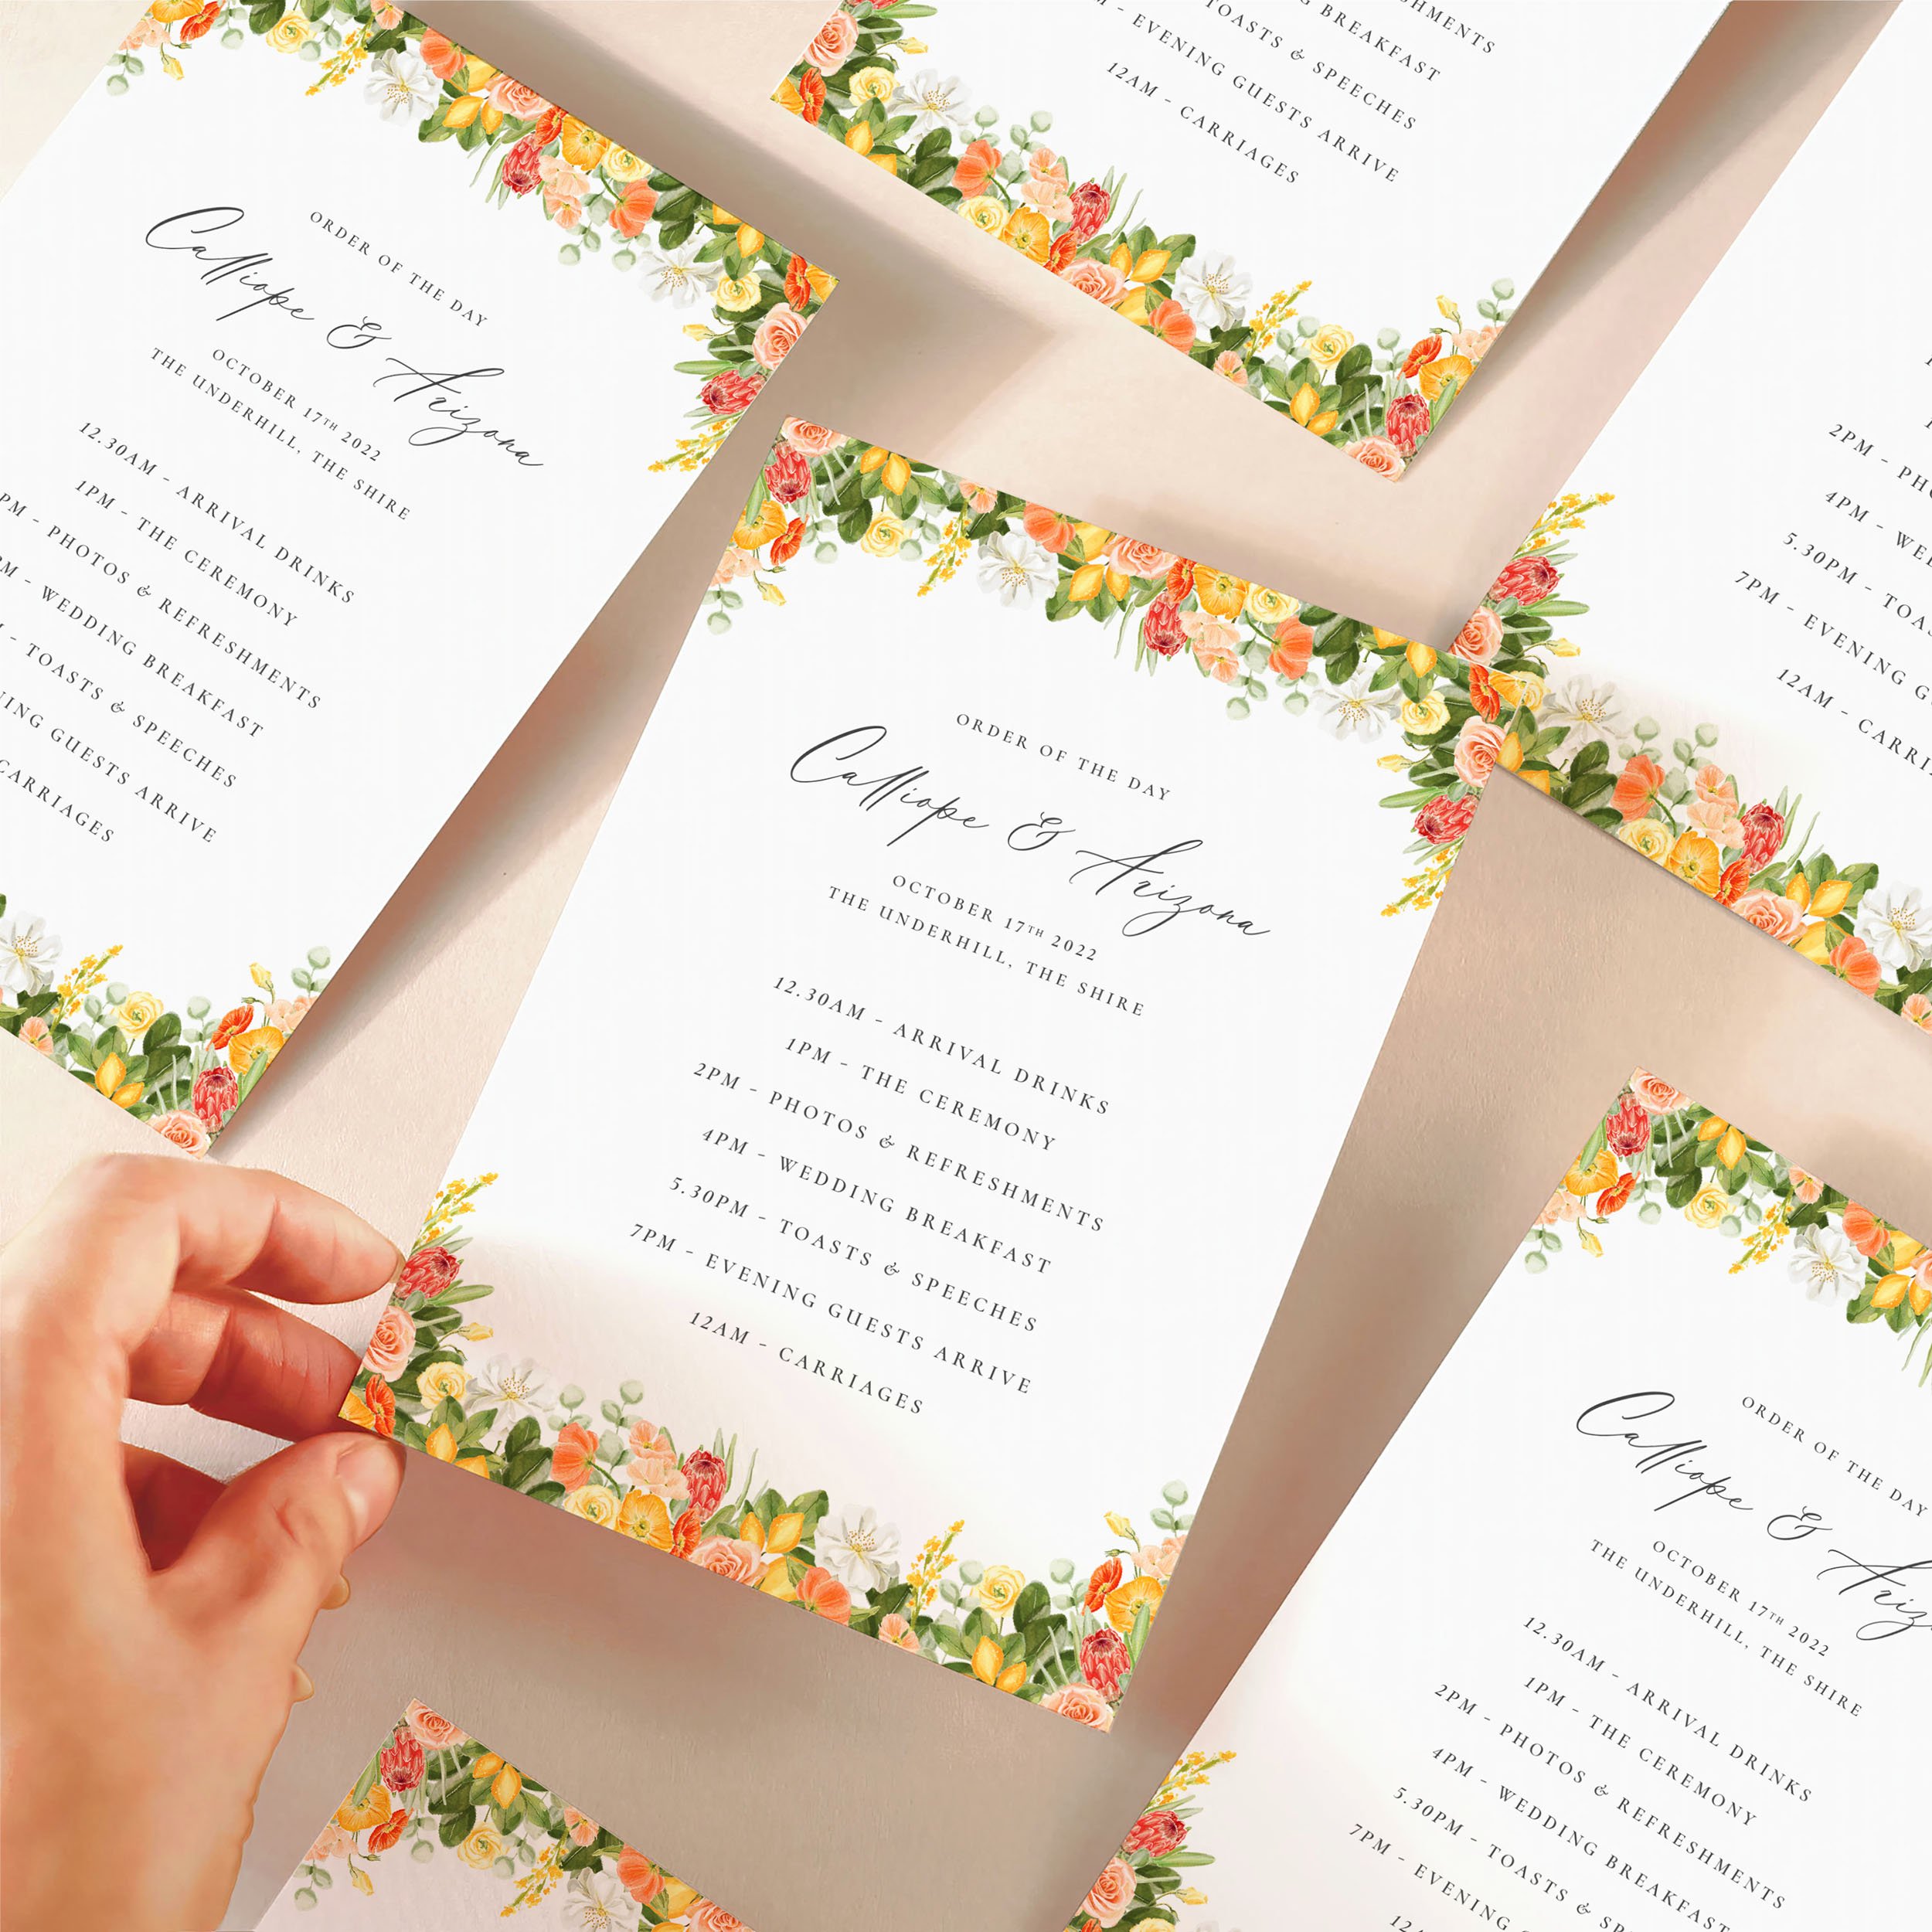 HMENTS
G BREAKFAST
TOASTS & SPEECHES
M - EVENING GUESTS ARRIVE
12AM - CARRIAGES
ORDER OF THE DAY
Calliope & Arizona
OCTOBER 17TH 2022
THE UNDERHILL, THE SHIRE
12.30AM - ARRIVAL DRINKS
1PM - THE CEREMONY
PM - PHOTOS & REFRESHMENTS
M - WEDDING BREAKFAST
- TOASTS & SPEECHES
NING GUESTS ARRIVE
CARRIAGES
2PM - PH
4PM - WE
5.30PM - TOA
7PM - EVENING G
12AM - CARRI
ORDER OF THE DAY
Calliope & Arizona
OCTOBER 17TH 2022
THE UNDERHILL, THE SHIRE
12.30AM - ARRIVAL DRINKS
1PM - THE CEREMONY
2PM - PHOTOS & REFRESHMENTS
4PM - WEDDING BREAKFAST
5.30PM - TOASTS & SPEECHES
7PM - EVENING GUESTS ARRIVE
12AM - CARRIAGES
ORDER OF THE DAY
Calliope & Ariz
OCTOBER 17TH 2022
THE UNDERHILL, THE SHIRE
12.30AM - ARRIVAL DRINKS
1PM - THE CEREMONY
2PM - PHOTOS & REFRESHMENTS
4PM - WEDDING BREAKFAST
5.30PM - TOASTS & SP
7PM - EVENING
12